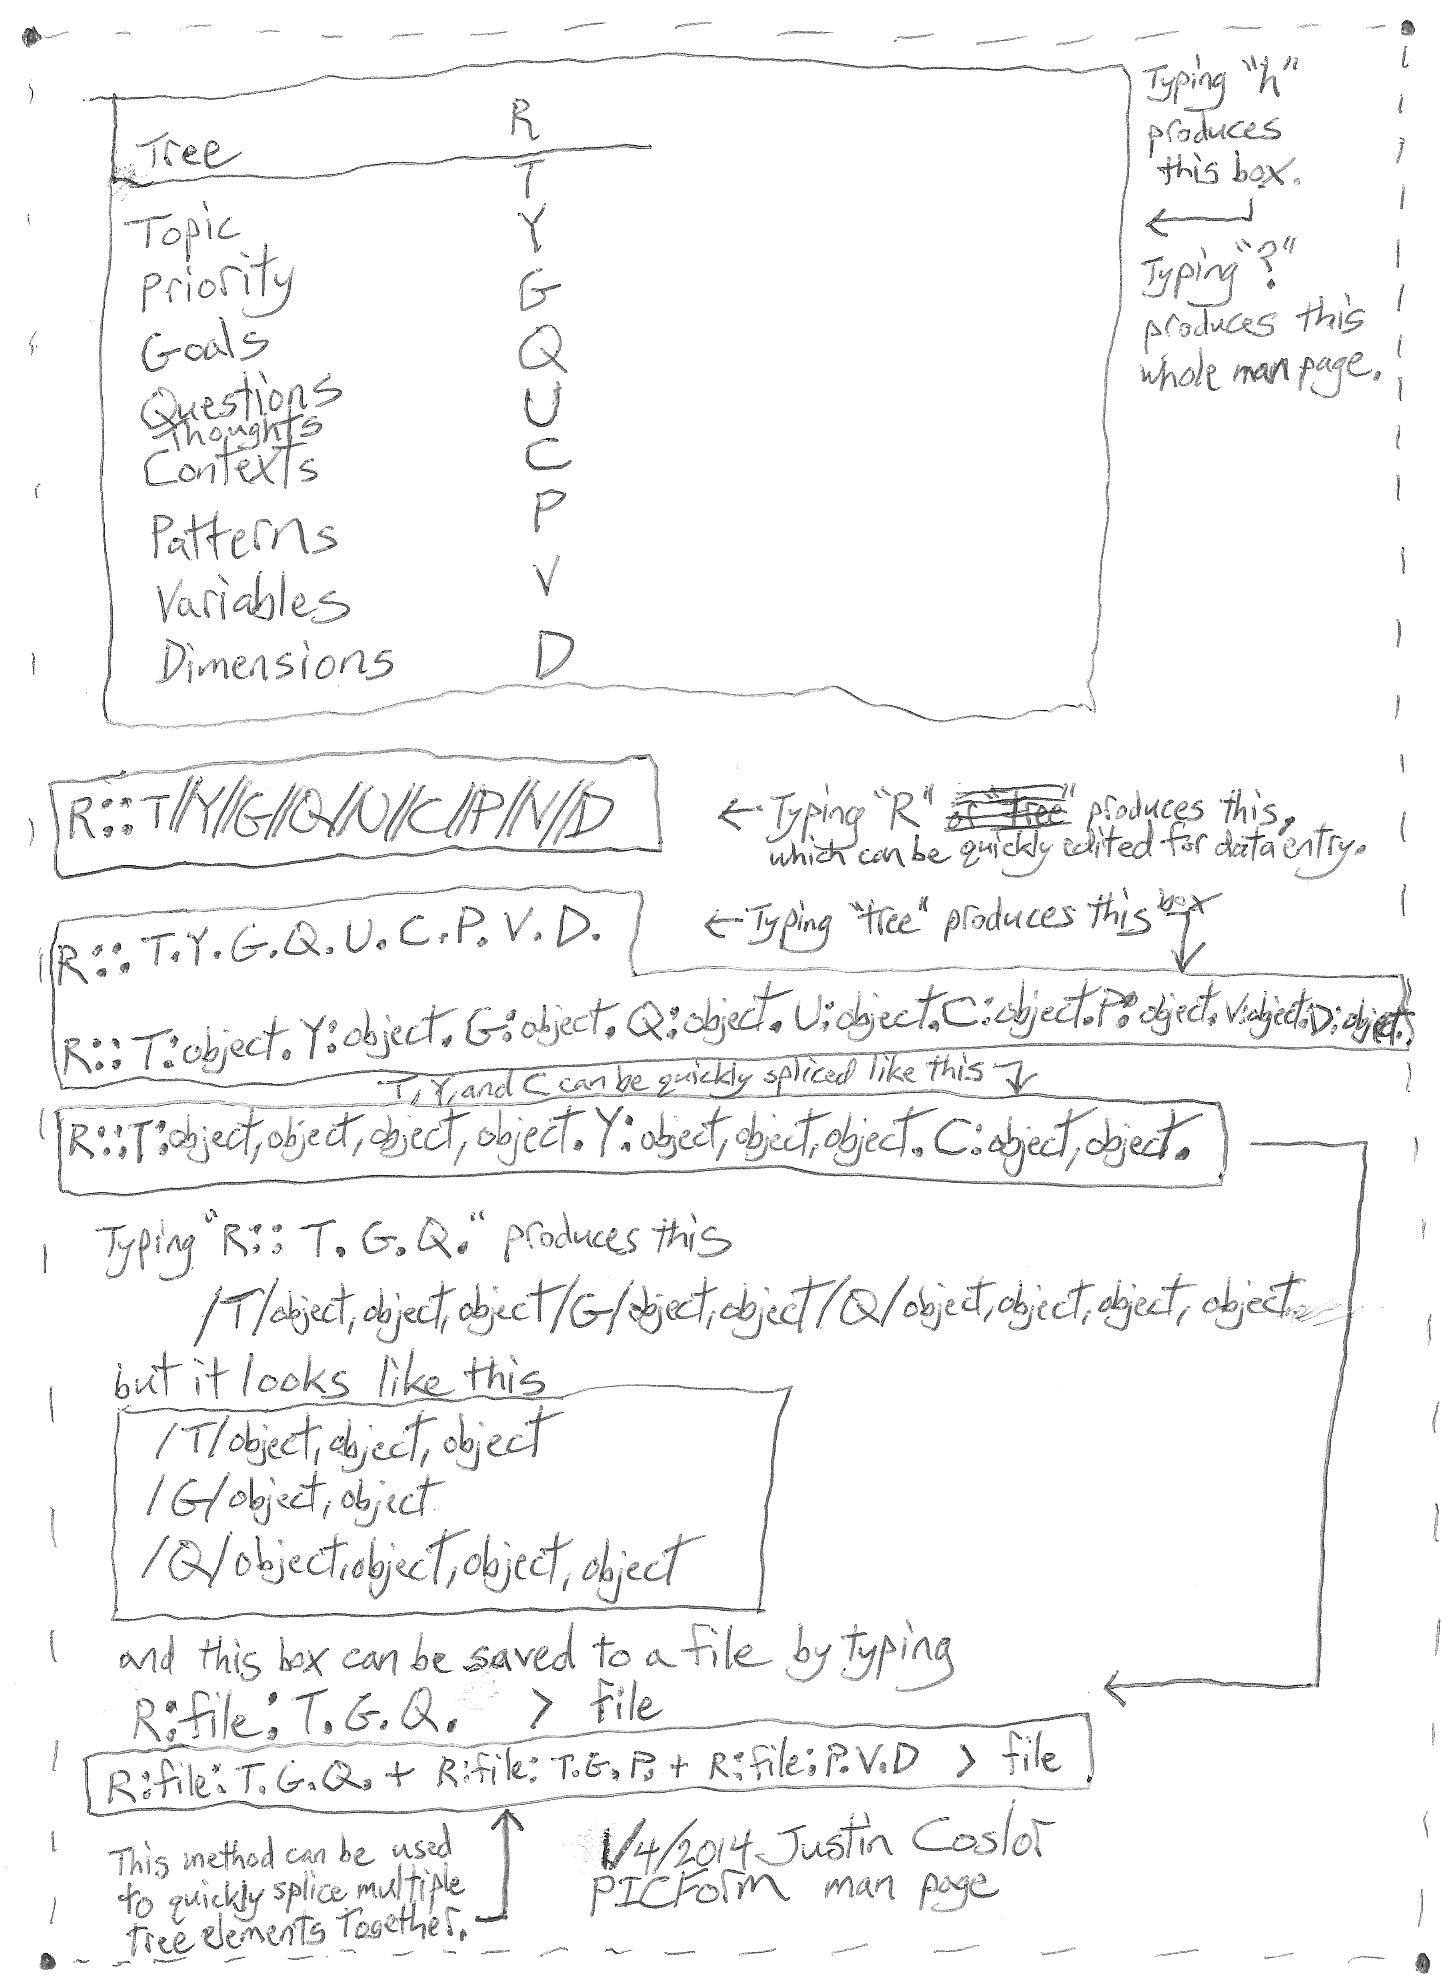 Tree R
Topic T
Priority Y
Goals G
Questions Q
Thoughts U
Contexts C
Patterns P
Variables V
Dimensions D
Typing "h"
produces
this box.
Typing "?"
produces this
whole man page.
R::T//Y//G//Q//U//C//P//V//D
Typing "R" or "tree" produces this,
which can be quickly edited for data entry.
R:: T.Y.G.Q.U.C.P.V.D.
Typing "tree" produces this box
R:: T:object. Y:object. G:object. Q:object. U:object. C:object. P:object. V:object. D:object.
T, Y, and C can be quickly spliced like this
R::T:object,object,object,object. Y:object,object,object. C:object,object.
Typing "R:: T. G. Q." produces this
/T/object,object,object/G/object,object/Q/object,object,object,object
but it looks like this
/T/object,object,object
/G/object,object
/Q/object,object,object,object
and this box can be saved to a file by typing
R:file:T.G.Q. > file
R:file:T.G.Q. + R:file:T.G.P. + R:file:P.V.D > file
This method can be used
to quickly splice multiple
tree elements together.
1/4/2014 Justin Coslor
PICForm man page